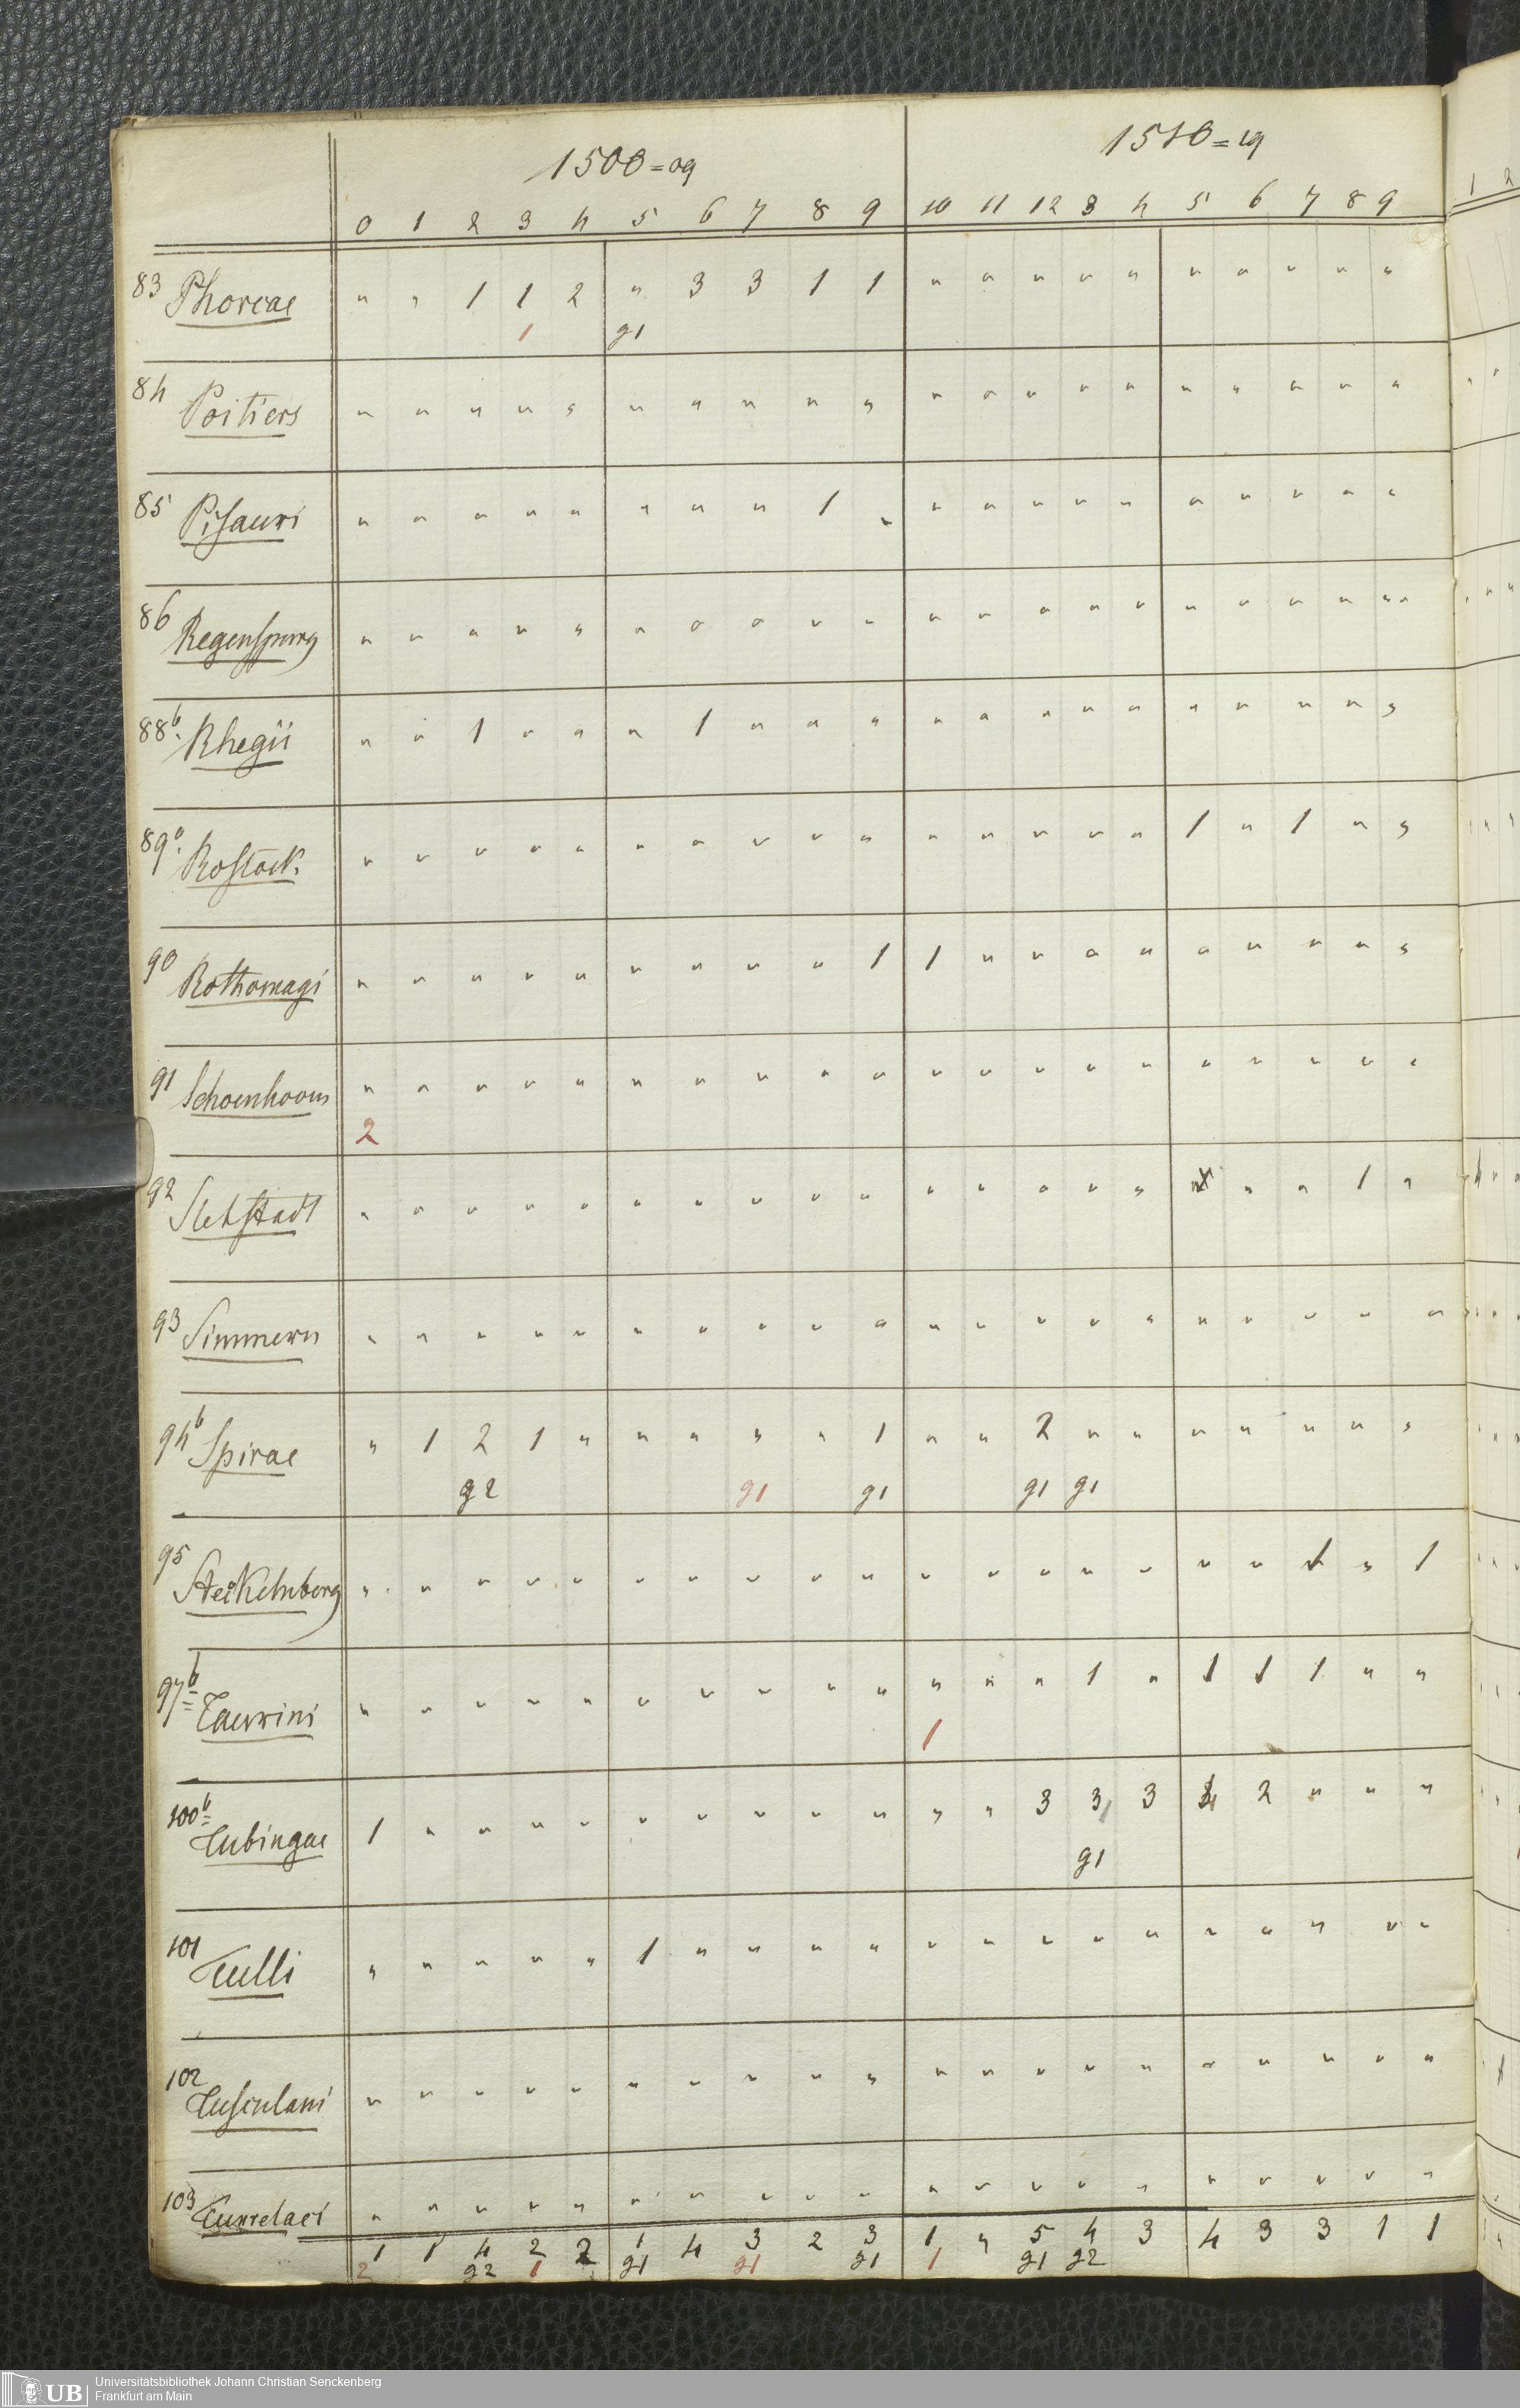 1500=09 1510=19
0 1 2 3 4 5 6 7 8 9 10 11 12 3 4 5 6 7 8 9
83 Phorcae " " 1 1 2 " 3 3 1 1 " " " " " " " " " "
1 g1
84 Poitiers " " " " " " " " " " " " " " " " " " " "
85 Pisauri " " " " " " " " 1 " " " " " " " " " " "
86 Regenspurg " " " " " " " " " " " " " " " " " " " "
88b. Rhegii " " 1 " " " 1 " " " " " " " " " " " " "
89b. Rostock. " " " " " " " " " " " " " " " 1 " 1 " "
90 Rothomagi " " " " " " " " " 1 1 " " " " " " " " "
91 Schoenhoven " " " " " " " " " " " " " " " " " " " "
2
92 Sletstadt " " " " " " " " " " " " " " " " " " 1 "
93 Simmern " " " " " " " " " " " " " " " " " " " "
94b Spirae " 1 2 1 " " " " " 1 " " 2 " " " " " " "
g2 g1 g1 g1 g1
95 Steckelnberg " " " " " " " " " " " " " " " " " 1 " 1
97b Taurini " " " " " " " " " " " " " 1 " 1 1 1 " "
1
100b Tubingae 1 " " " " " " " " " " " 3 3 3 2 " " "
g1
101 Tulli " " " " " 1 " " " " " " " " " " " " " "
102 Tusculani " " " " " " " " " " " " " " " " " " " "
103 Turrelaci " " " " " " " " " " " " " " " " " " " "
1 1 4 2 2 1 4 3 2 3 1 " 5 4 3 4 3 3 1 1
2 g2 1 g1 g1 g1 1 g1 g2
UB Universitätsbibliothek Johann Christian Senckenberg
Frankfurt am Main